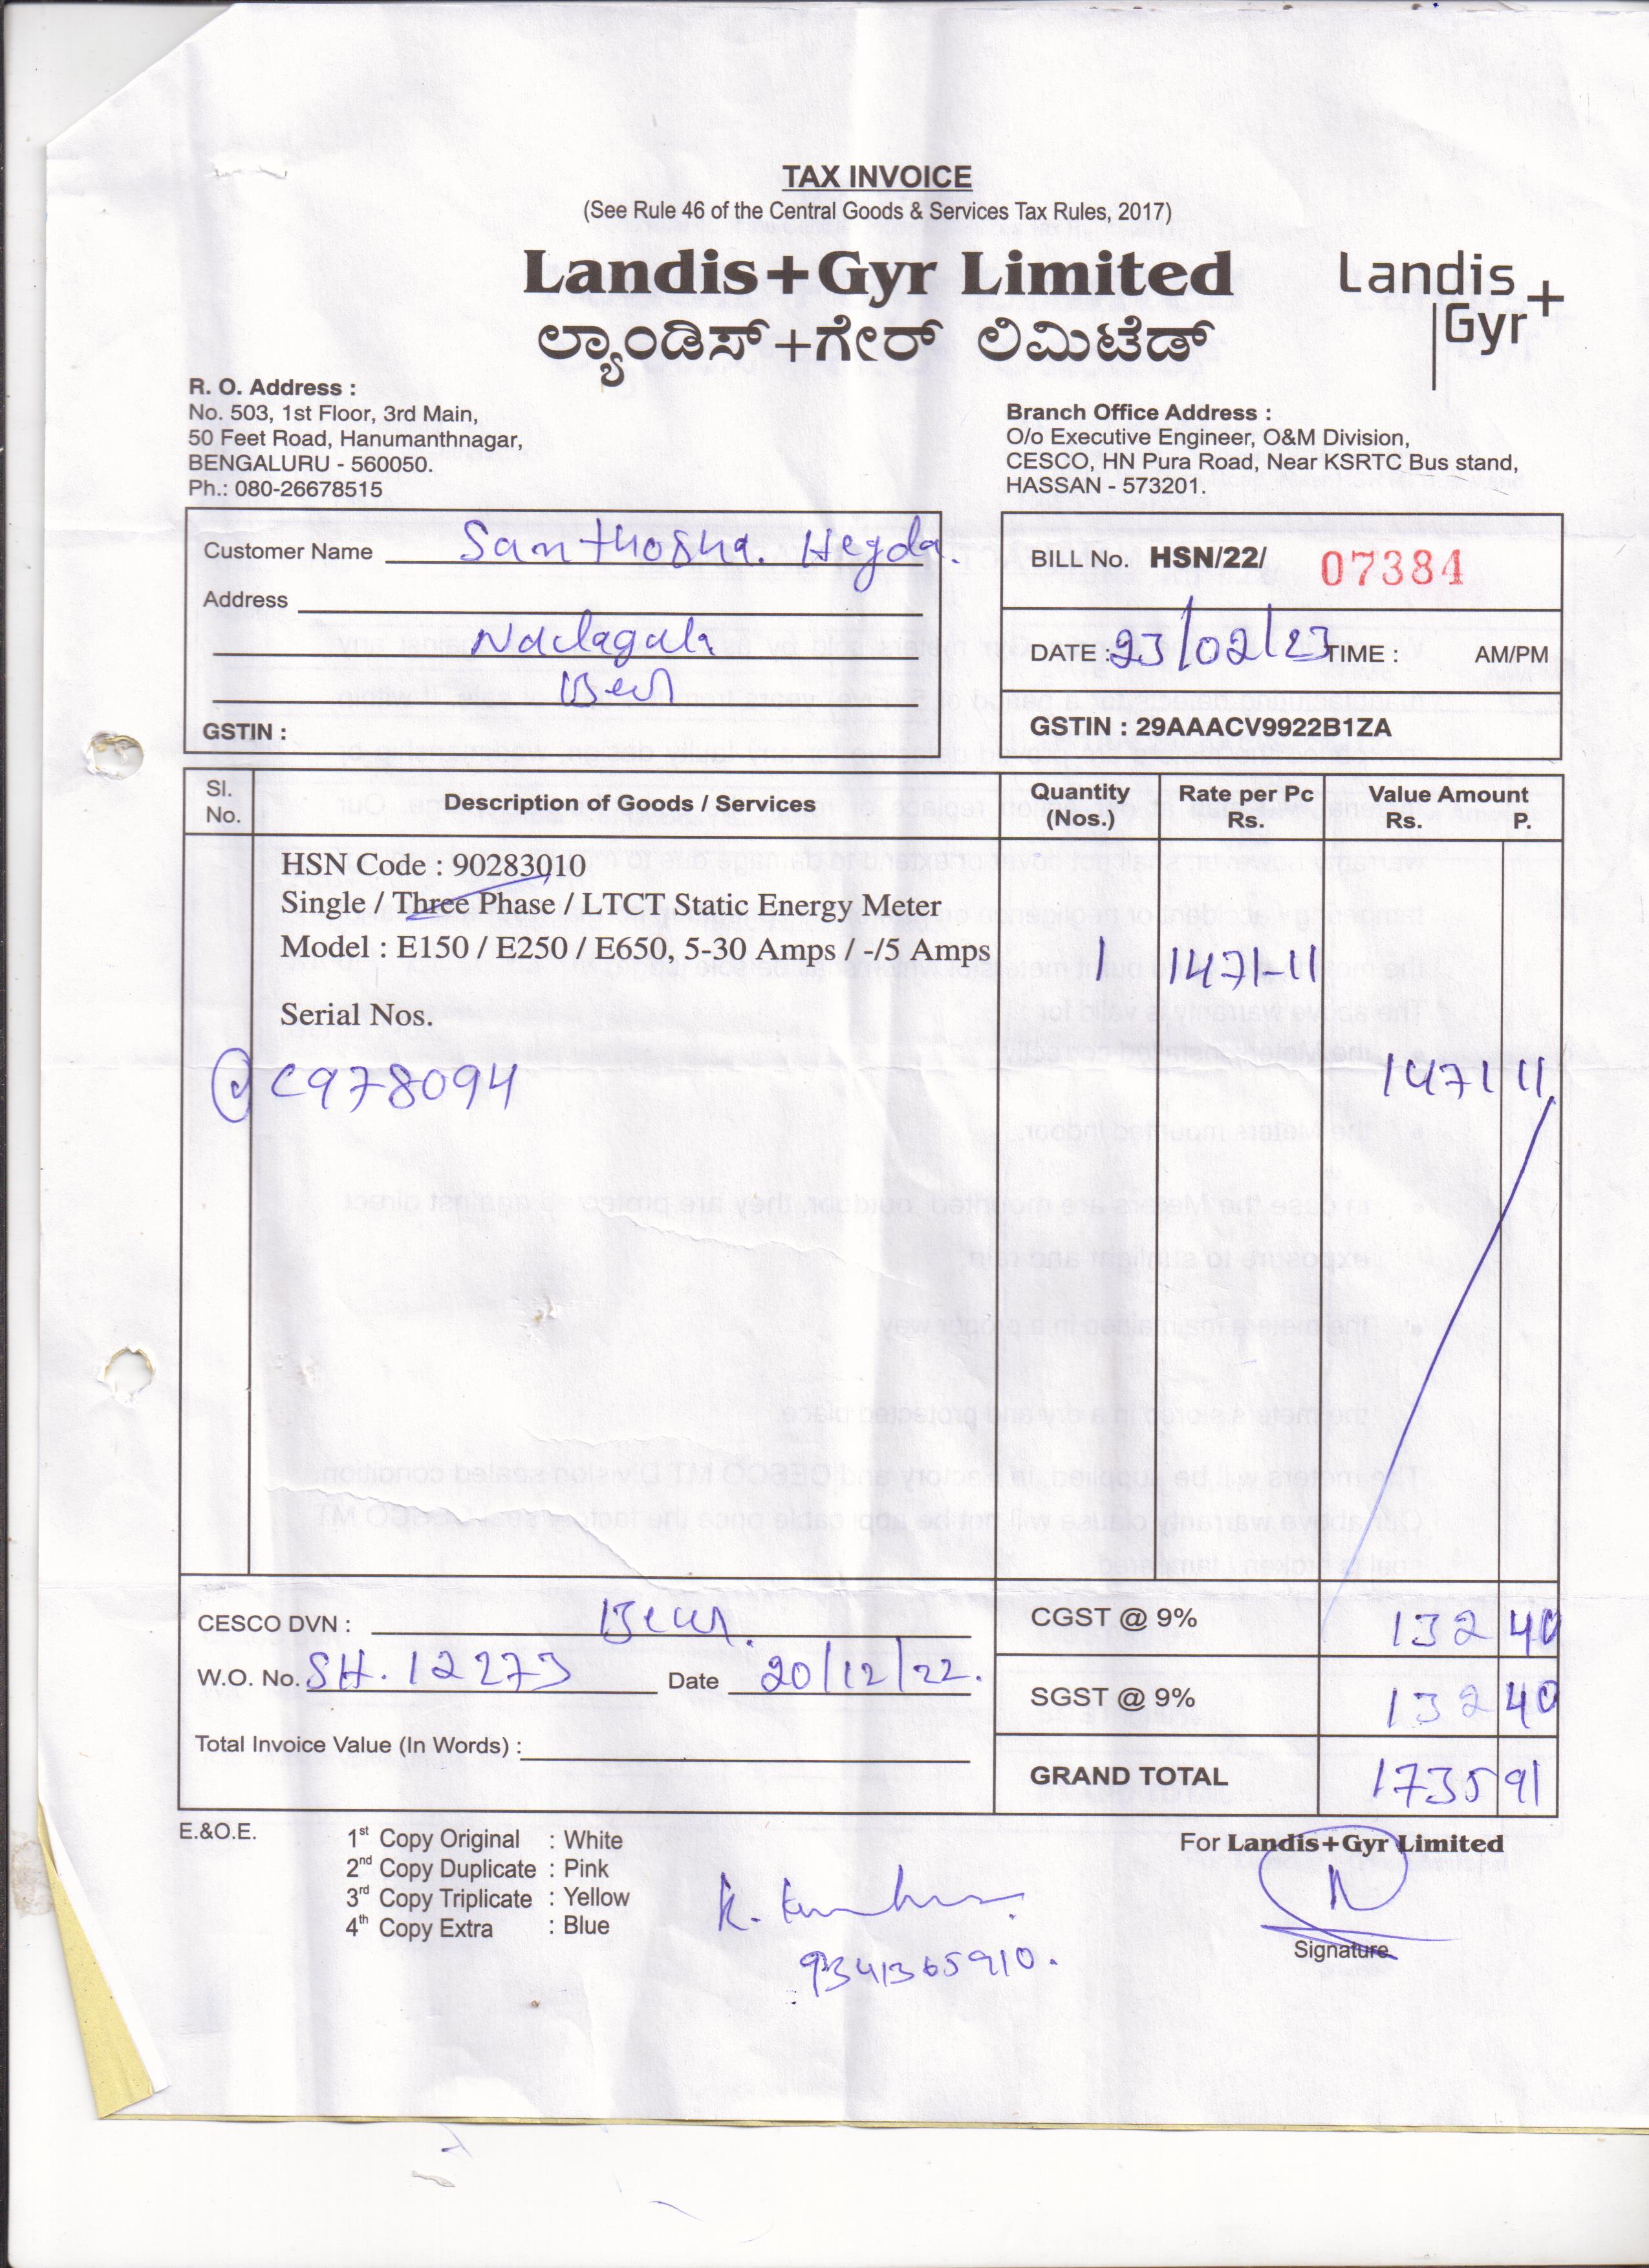 TAX INVOICE
(See Rule 46 of the Central Goods & Services Tax Rules, 2017)
Landis+Gyr Limited
ಲ್ಯಾಂಡಿಸ್+ಗೇರ್ ಲಿಮಿಟೆಡ್
Landis
Gyr+
R. O. Address :
No. 503, 1st Floor, 3rd Main,
50 Feet Road, Hanumanthnagar,
BENGALURU - 560050.
Ph.: 080-26678515
Branch Office Address :
O/o Executive Engineer, O&M Division,
CESCO, HN Pura Road, Near KSRTC Bus stand,
HASSAN - 573201.
Customer Name Santhosha. Hegda.
Address
GSTIN :
BILL No. HSN/22/ 07384
DATE : 23/02/23 TIME : AM/PM
GSTIN : 29AAACV9922B1ZA
Sl. No. Description of Goods / Services Quantity (Nos.) Rate per Pc Rs. Value Amount Rs. P.
HSN Code : 90283010
Single / Three Phase / LTCT Static Energy Meter
Model : E150 / E250 / E650, 5-30 Amps / -/5 Amps 1 1471-11
Serial Nos.
C978094 1471 11
CESCO DVN :
CGST @ 9% 132 40
W.O. No. SH. 12273 Date 20/12/22.
SGST @ 9% 132 40
Total Invoice Value (In Words) :
GRAND TOTAL 1735 91
E.&O.E.
1st Copy Original : White
2nd Copy Duplicate : Pink
3rd Copy Triplicate : Yellow
4th Copy Extra : Blue
For Landis+Gyr Limited
9341365910.
Signature